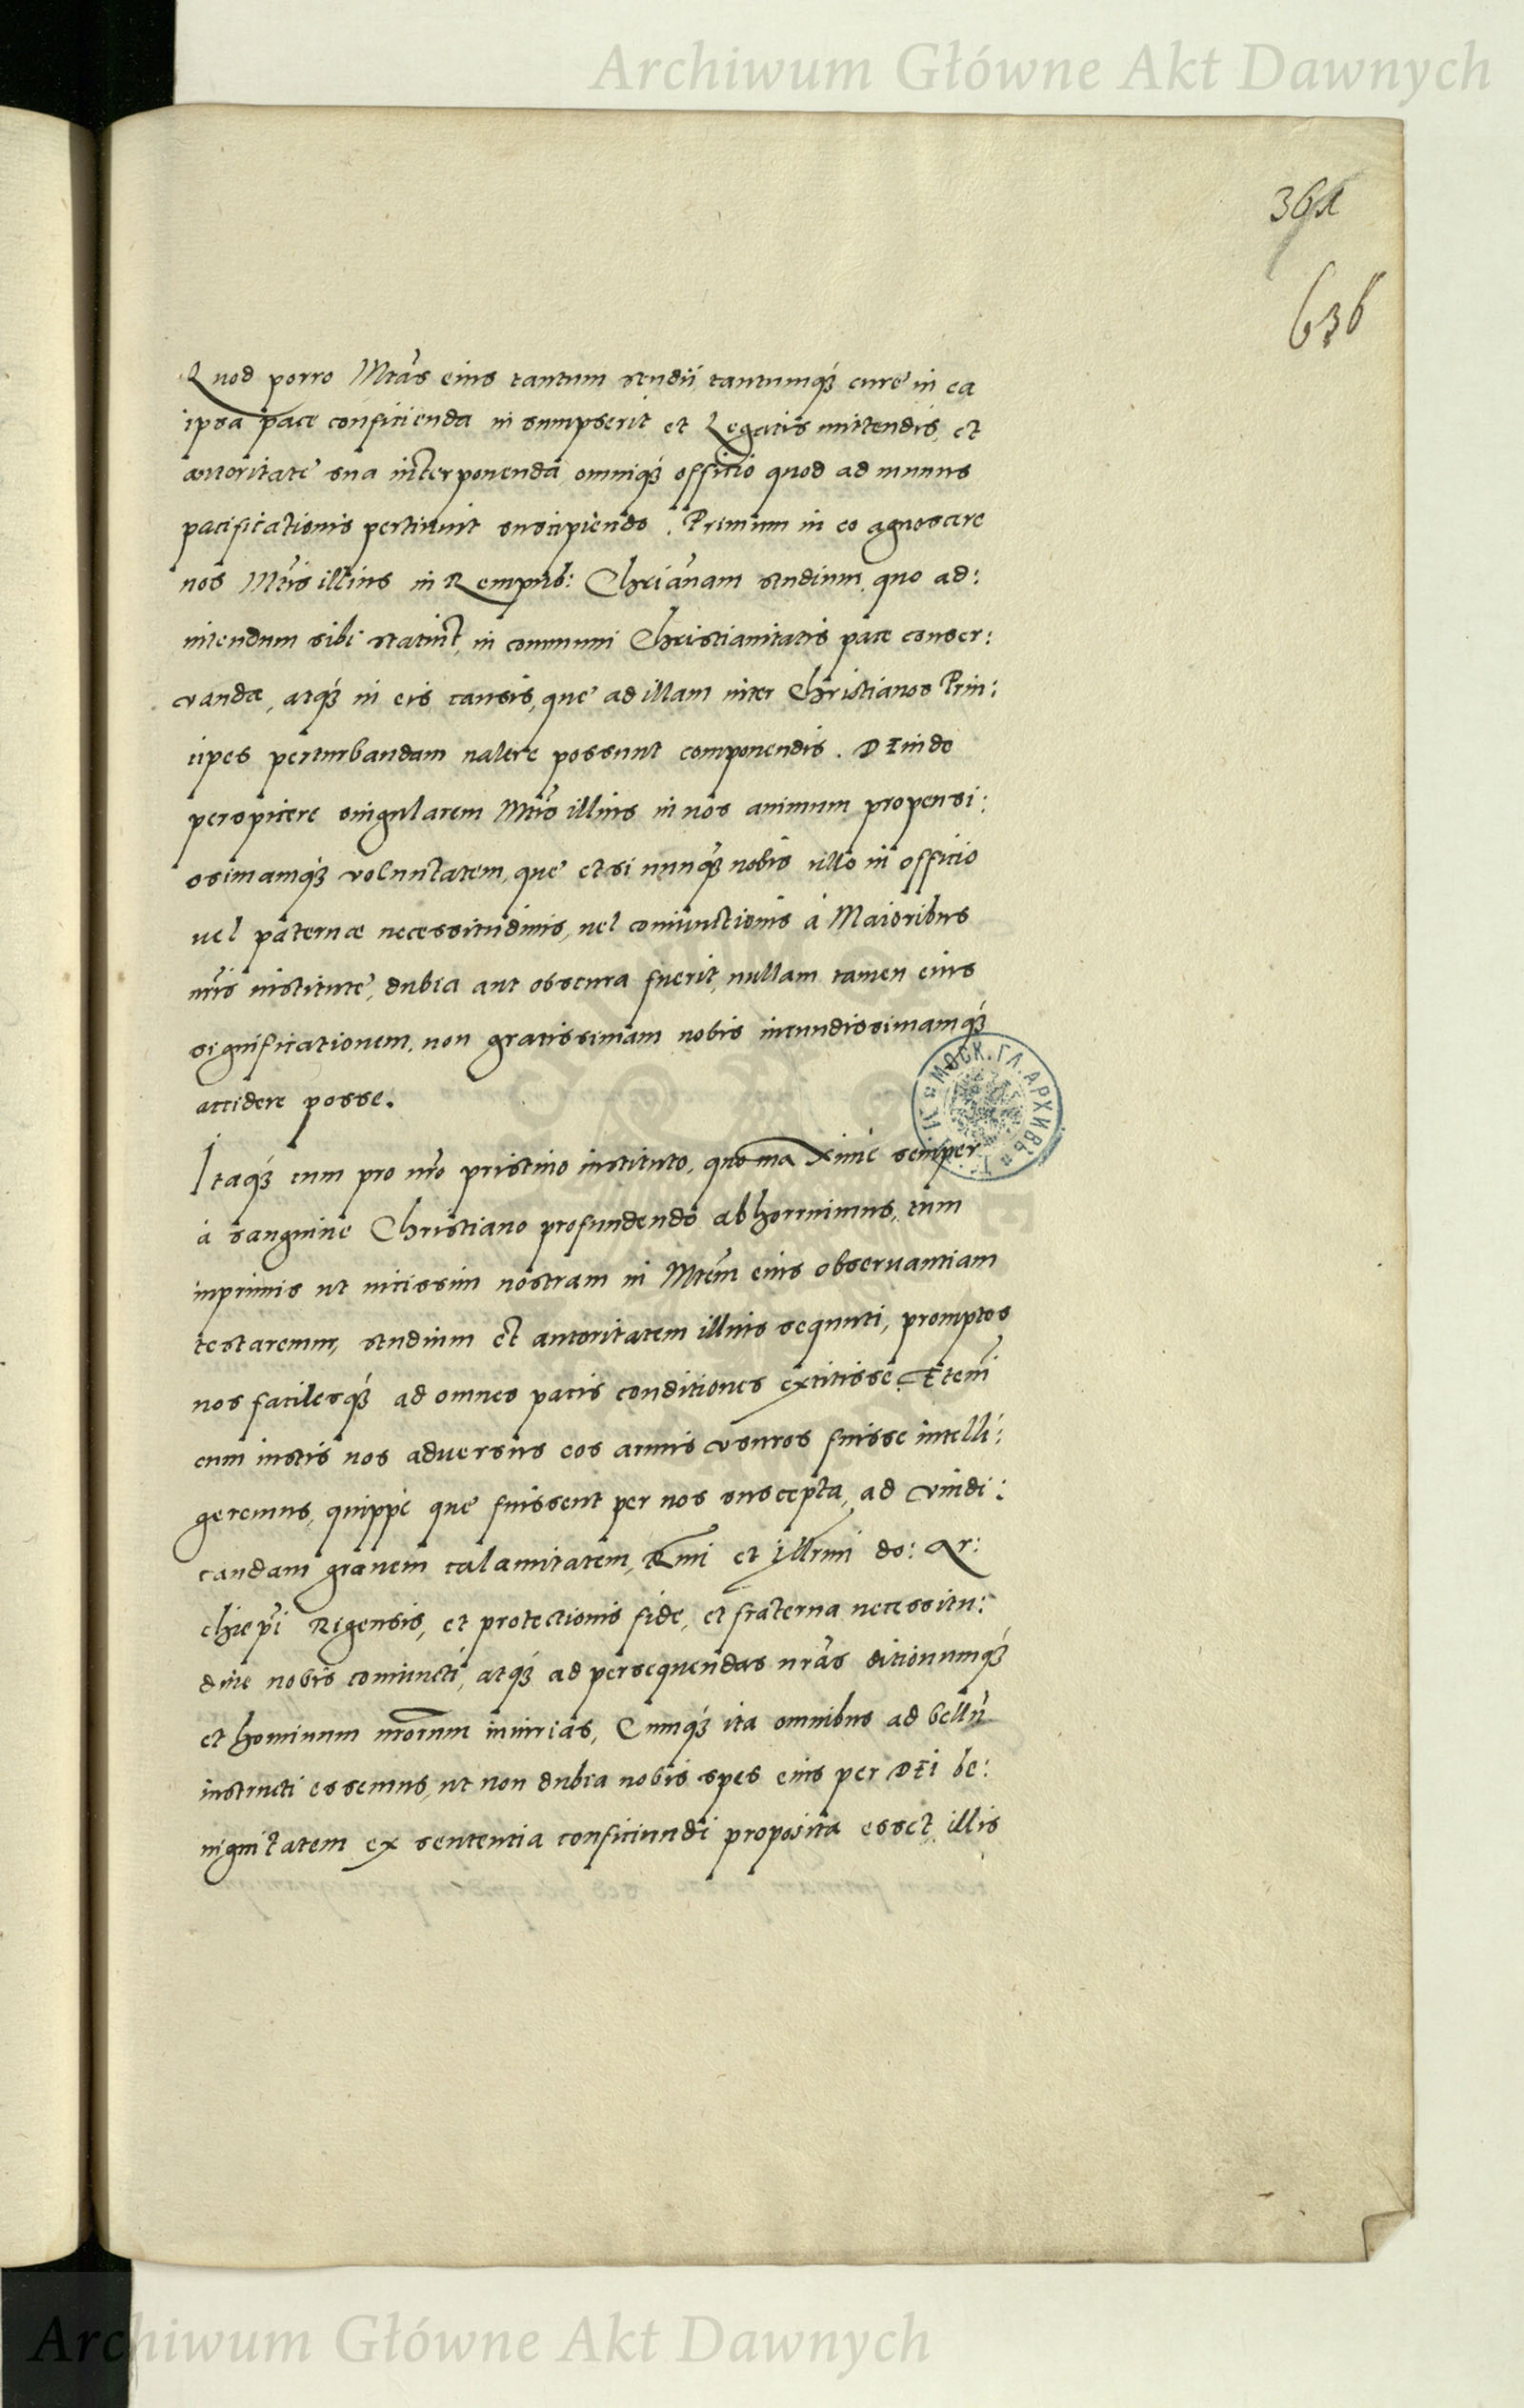 Archiwum Główne Akt Dawnych
361
636
Quod porro Mtas eius tantum studii, tantumq́ʒ curę in ea
ipsa pace conficienda in sumpserit, et Legatis mittendis, et
autoritate sua interponenda, omniq́ʒ officio quod ad munus
pacificationis pertinuit suscipiendo. Primum in eo agnoscere
nos Mtis illius in Rempub: Chrianam studium, quo ad:
nitendum sibi statuit, in communi Christianitatis pace conser:
vanda, atq́ʒ in eis causis, quę ad illam inter Christianos Prin:
cipes perturbandam ualere possunt componendis. DEinde
perspicere singularem Mtis illius in nos animum propensi:
ssimamq́ʒ voluntatem, quę etsi nunq́ʒ nobis ullo in officio
uel paternæ necessitudinis, uel coniunctionis à Maioribus
nris institutę, dubia aut obscura fuerit, nullam tamen eius
significationem, non gratissimam nobis iucundissimamq́ʒ
accidere posse.
Itaq́ʒ cum pro nro pristino instituto, quo maxime semper
à sanguine Christiano profundendo abhorruimus, tum
inprimis ut uicissim nostram in Mtem eius obseruantiam
testaremur, studium et autoritatem illius sequuti, promptos
nos facilesq́ʒ ad omnes pacis conditiones extitisse. Etenim
cum iustis nos adversus eos armis vsuros fuisse intelli:
geremus, quippe quę fuissent per nos suscepta, ad vindi:
candam grauem calamitatem, Rmi et Illrmi do: Ar:
chiepi Rigensis, et protectionis fide, et fraterna necessitu:
dine nobis coniuncti, atq́ʒ ad persequendas nras ditionumq́ʒ
et hominum nrorum iniurias, Cumq́ʒ ita omnibus ad bellũ
instructi essemus, ut non dubia nobis spes eius per DEi be:
nignitatem ex sententia conficiundi proposita esset, illis
МОСК. ГЛ. АРХИВЪ
Archiwum Główne Akt Dawnych